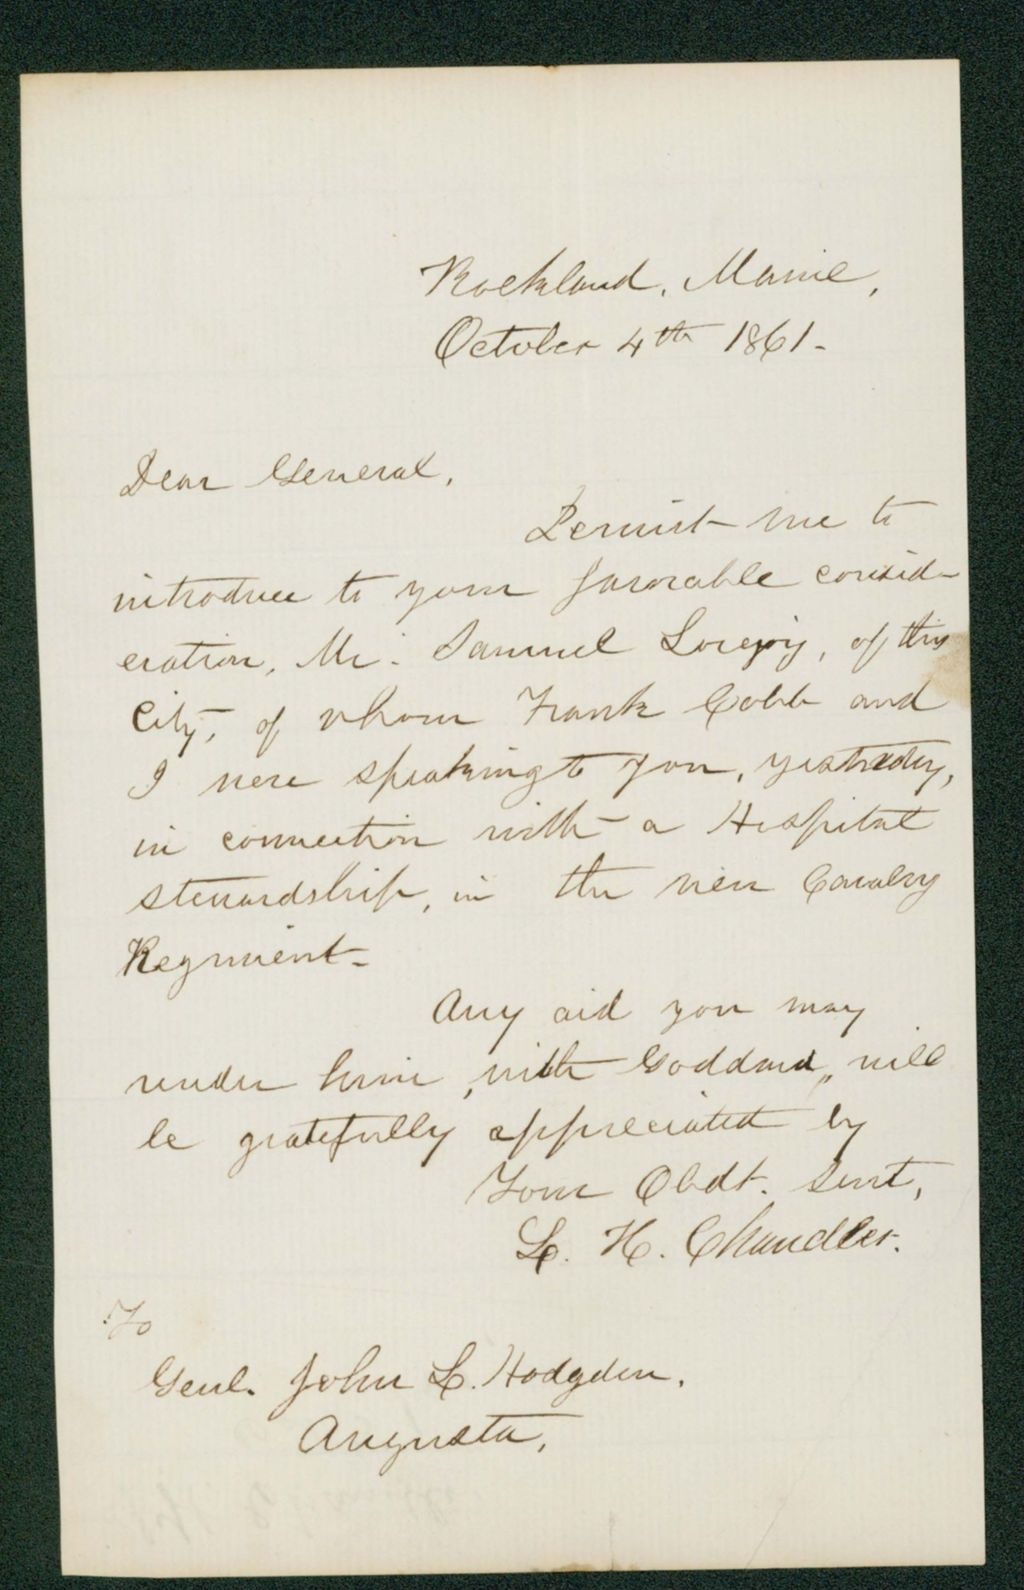 Rockland, Maine,
October 4th 1861-
Dear General,
Permit me to
introduce to your favorable consid-
eration, Mr. Samuel Lovejoy, of this
City, of whom Frank Cobb and
I were speaking to you, yesterday,
in connection with a Hospital
stewardship, in the new Cavalry
Regiment-
Any aid you may
render him, with Goddard, will
be gratefully appreciated by
Your Obdt. Servt,
L. H. Chandler.
To
Genl. John L. Hodgdon,
Augusta,